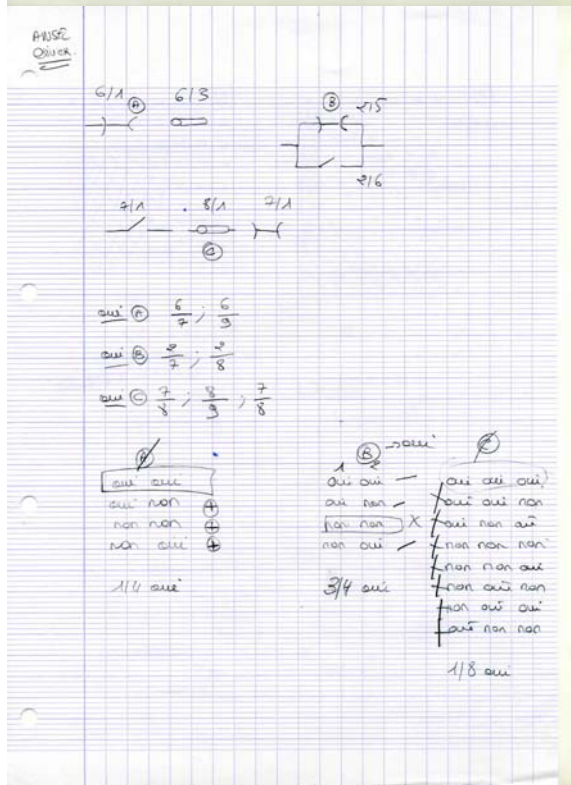 6/1 A 6/3
B 2/5
2/6
7/1 8/1 7/1
C
oui A 6/7 ; 6/9
oui B 2/7 ; 2/8
oui C 7/8 ; 8/9 ; 7/8
A
oui oui
oui non +
non non +
non oui +
1/4 oui
B → oui
1 2
oui oui
oui non
non non X
non oui
3/4 oui
C
oui oui oui
oui oui non
oui non oui
non non non
non non oui
non oui non
non oui oui
oui non non
1/8 oui